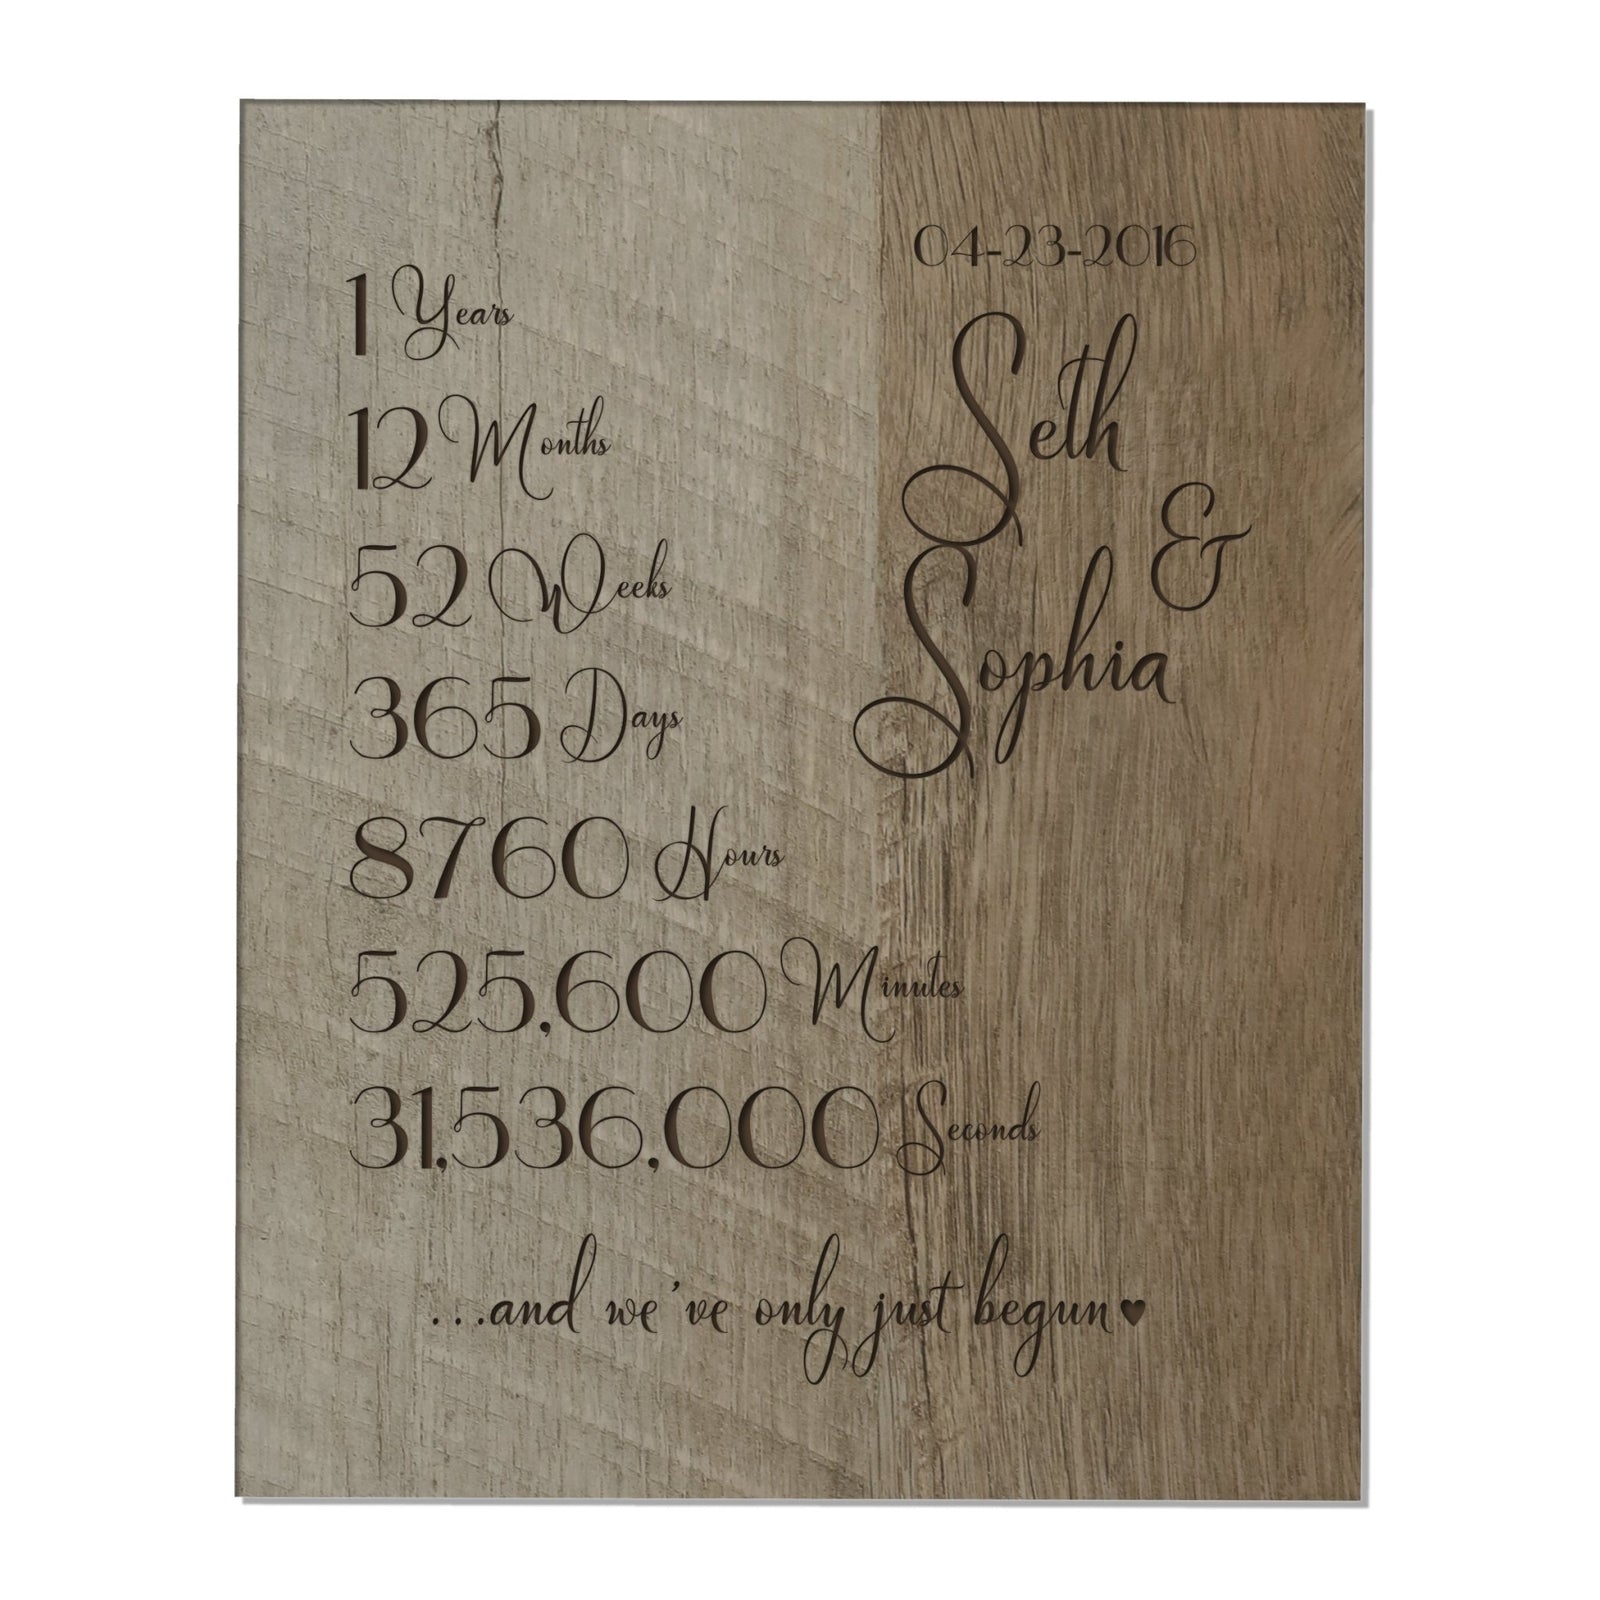 04-23-2016
Seth
&
Sophia
1 Years
12 Months
52 Weeks
365 Days
8760 Hours
525,600 Minutes
31,536,000 Seconds
...and we've only just begun♥